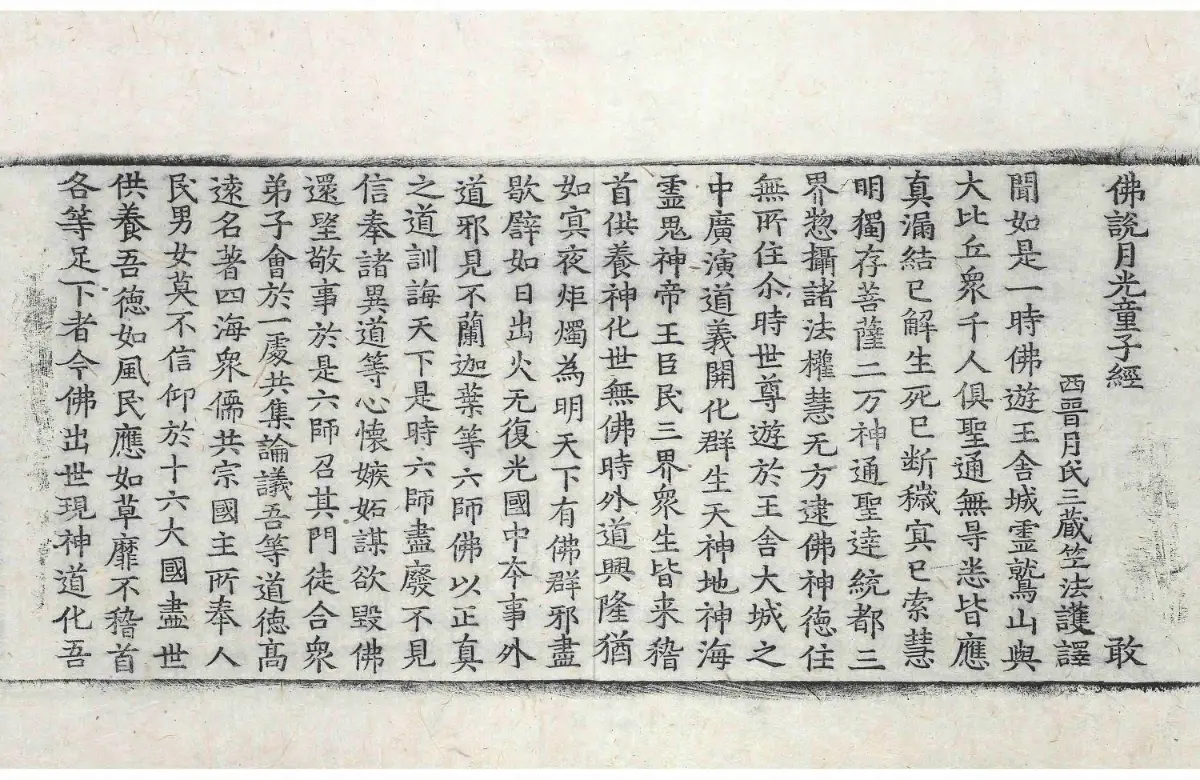 佛說月光童子經 敢
西晋月氏三蔵竺法護譯
聞如是一時佛遊王舍城霊鷲山與
大比丘衆千人俱聖通無㝵悉皆應
真漏結已解生死已断穢㝠已索慧
明獨存菩薩二万神通聖逹統都三
界惣攝諸法權慧无方逮佛神徳住
無所住尒時世尊遊於王舍大城之
中廣演道義開化群生天神地神海
霊鬼神帝王臣民三界衆生皆来稽
首供養神化世無佛時外道興隆猶
如㝠夜炬燭為明天下有佛群邪盡
歇譬如日出火无復光國中夲事外
道邪見不蘭迦葉等六師佛以正真
之道訓誨天下是時六師盡廢不見
信奉諸異道等心懷嫉妬謀欲毀佛
還望敬事於是六師召其門徒合衆
弟子會於一䖏共集論議吾等道徳髙
遠名著四海衆儒共宗國主所奉人
民男女莫不信仰於十六大國盡世
供養吾徳如風民應如草靡不稽首
各等足下者今佛出世現神道化吾